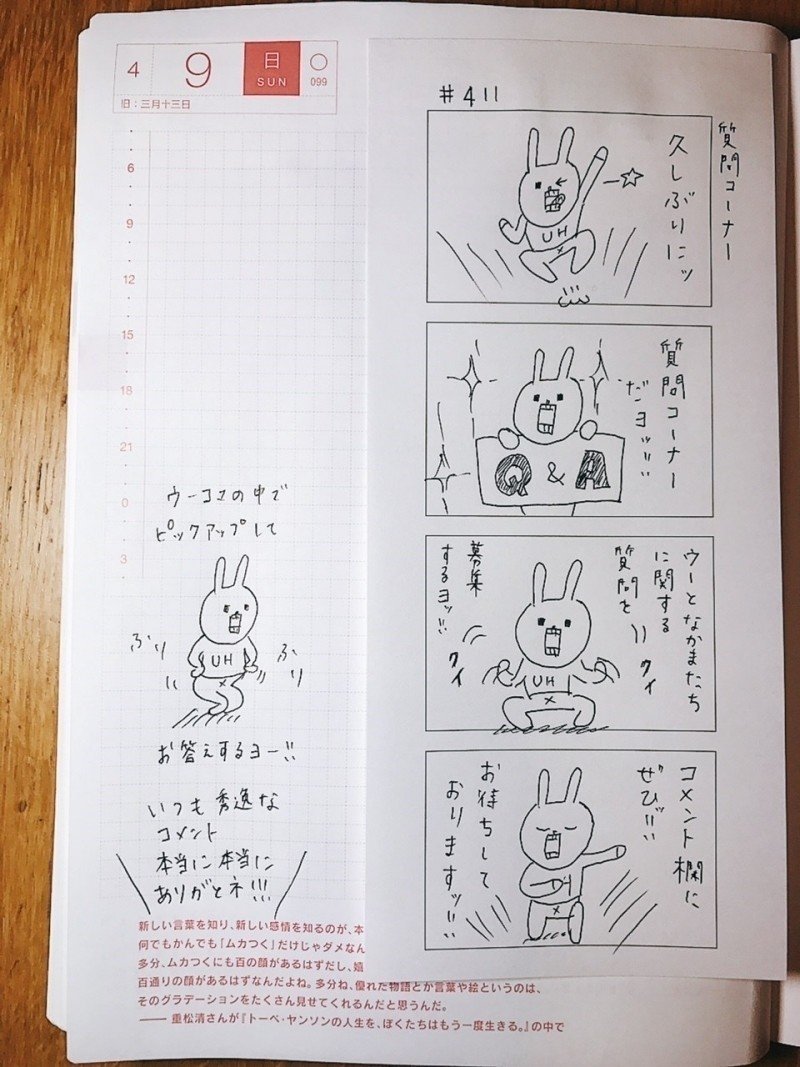 4
9
日
SUN
099
旧:三月十三日
6
9
12
15
18
21
0
3
#411
質問コーナー
久しぶりにッ
UH
質問コーナー
だヨッ!!!
Q & A
ウーとなかまたち
に関する
質問を
募集
するヨッ!!
クイ
クイ
UH
コメント欄に
ぜひ!!!
お待ちして
おりますッ!!
ウーコマの中で
ピックアップして
ふり
ふり
UH
お答えするヨー!!
いつも秀逸な
コメント
本当に本当に
ありがとネ!!!
新しい言葉を知り、新しい感情を知るのが、本
何でもかんでも「ムカつく」だけじゃダメなん
多分、ムカつくにも百の顔があるはずだし、嬉
百通りの顔があるはずなんだよね。多分ね、優れた物語とか言葉や絵というのは、
そのグラデーションをたくさん見せてくれるんだと思うんだ。
―― 重松清さんが『トーベ・ヤンソンの人生を、ぼくたちはもう一度生きる。』の中で